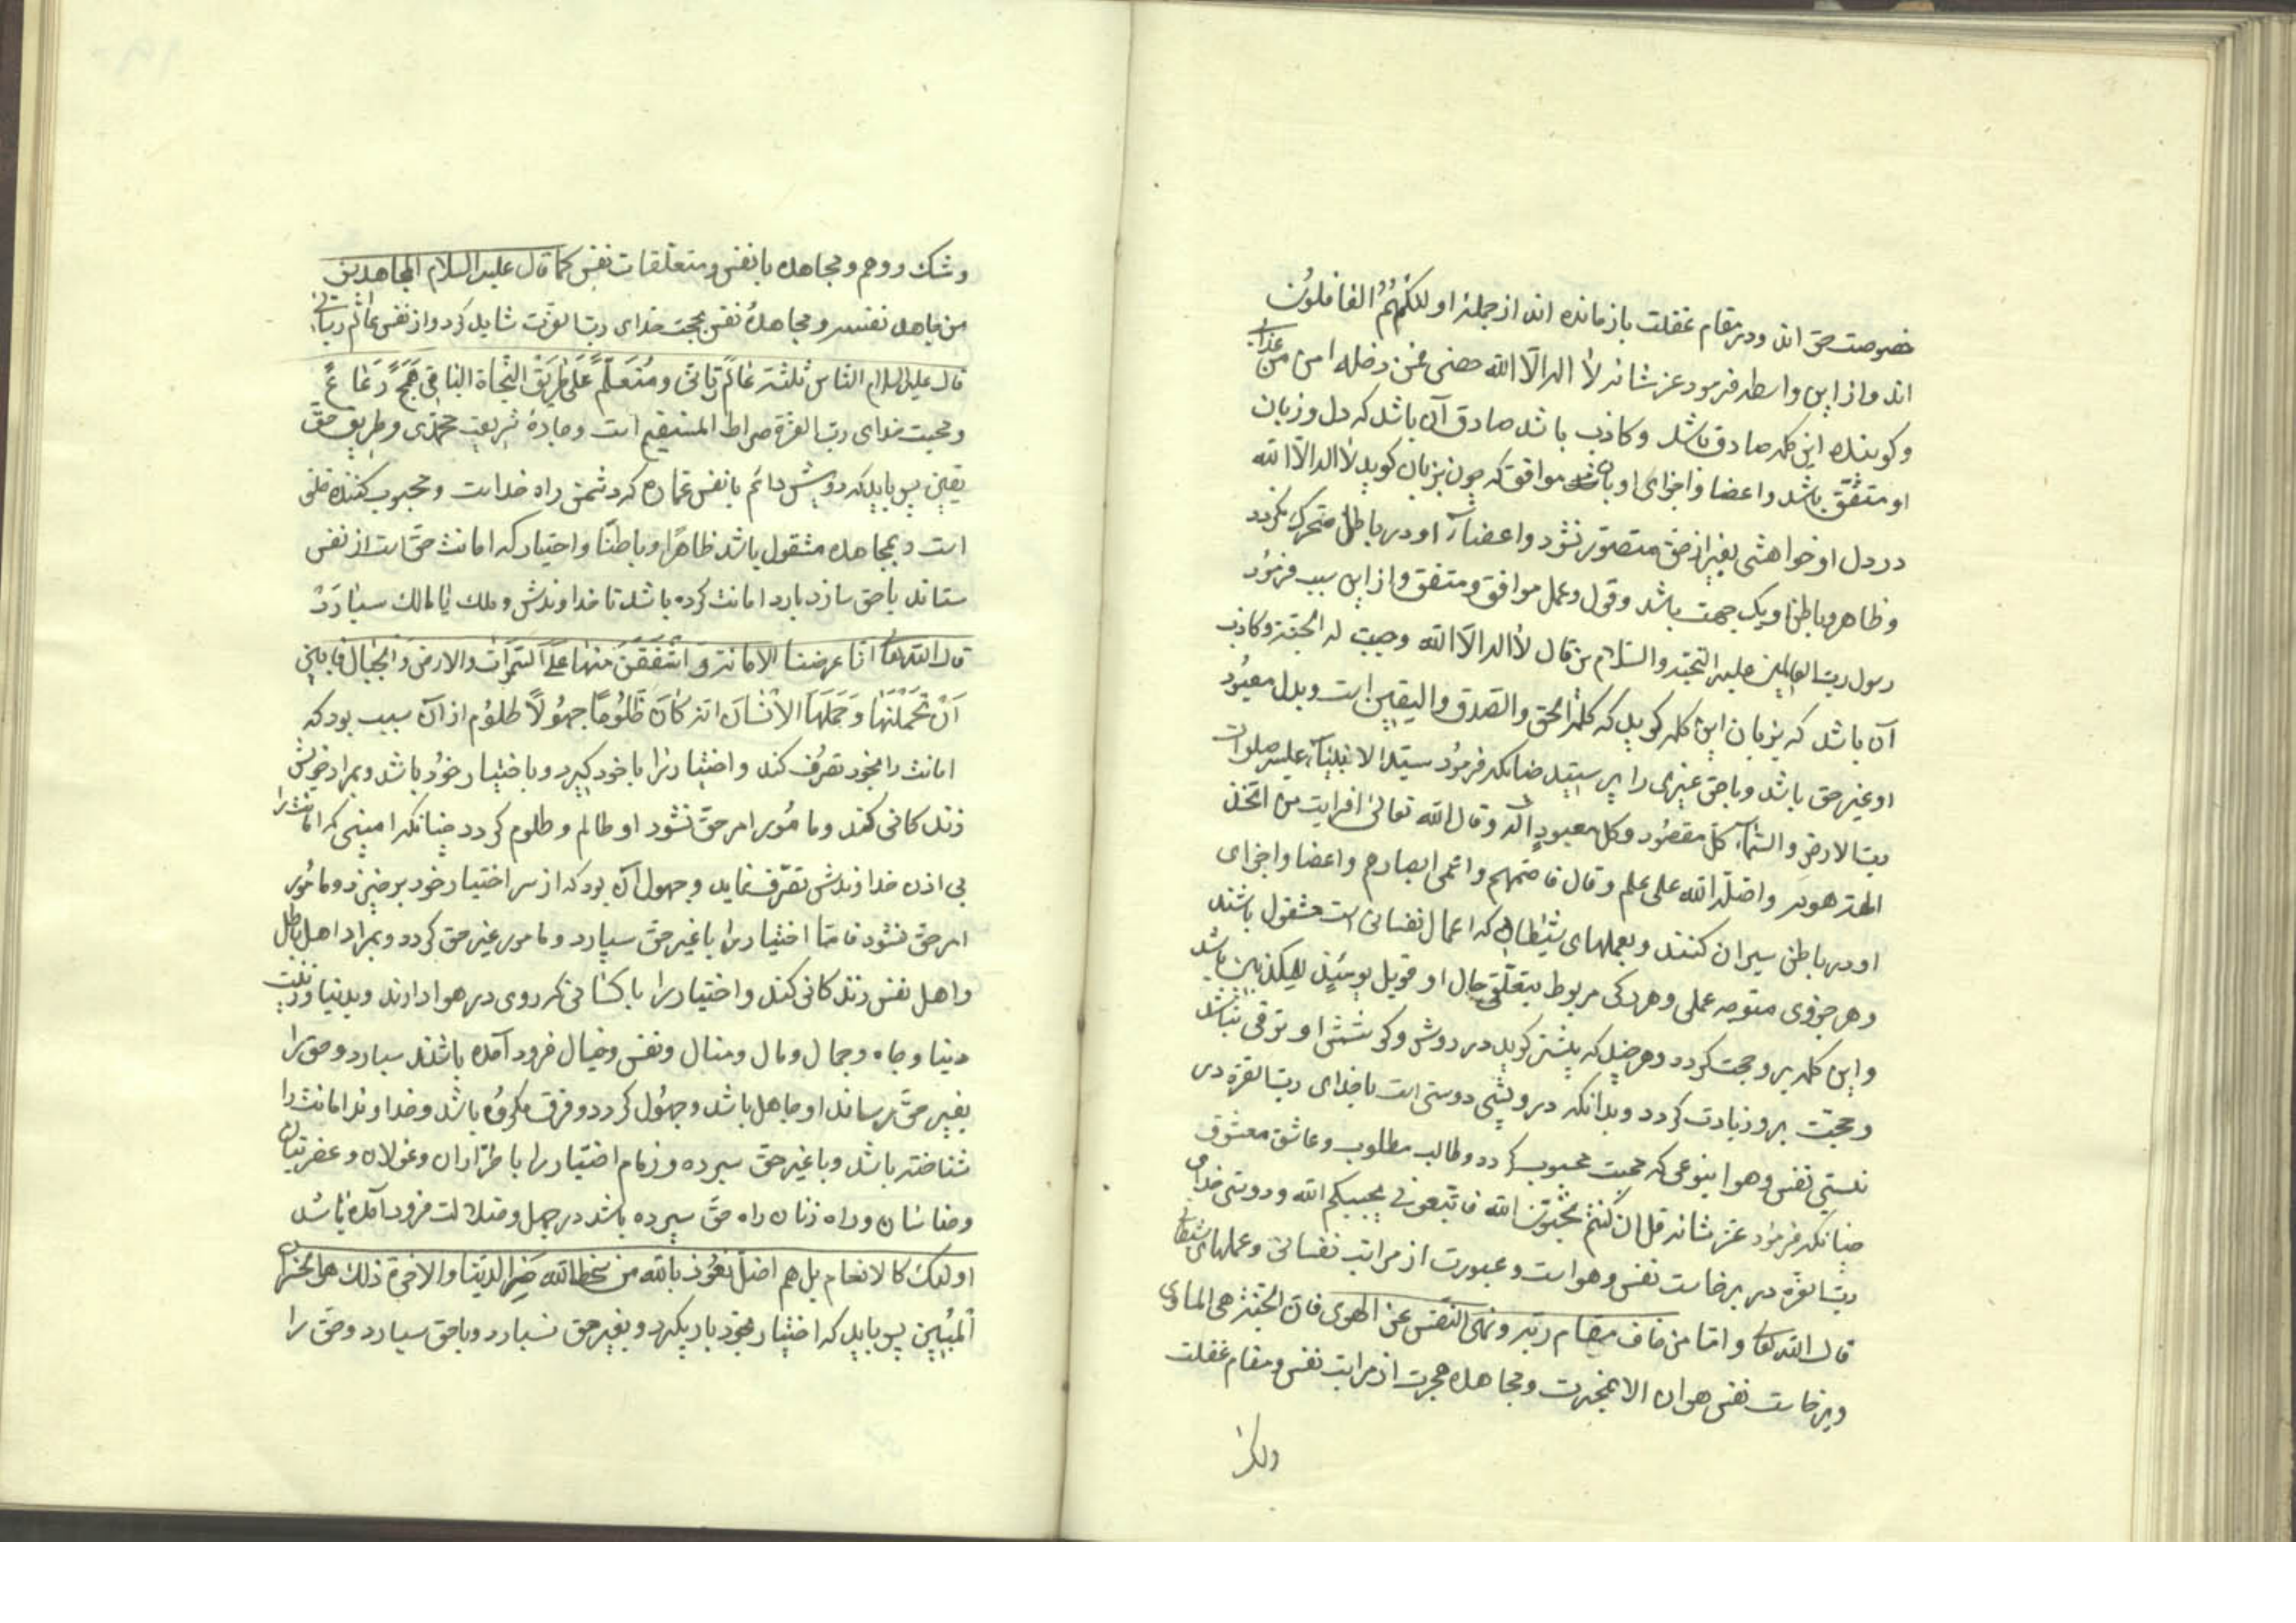 خصوصت حق اند ودر مقام غفلت باز مانده اند از جمله اولئک هم الغافلون
اند واز این واسطه فرمود عز شانه لا اله الا الله حصنی فمن دخله امن من عذابی
وکوینده این کلمه صادق باشد وکاذب باشد صادق آن باشد که دل وزبان
او متفق باشد واعضا واجزای او باو موافق که چون بزبان کوید لا اله الا الله
در دل او خواهشی بغیر از حق متصور نشود واعضاء او در باطل متحرک نکردد
وظاهر وباطن او یک جهت باشد وقول وعمل موافق ومتفق واز این سبب فرمود
رسول رب العالمین علیه التحیه والسلام من قال لا اله الا الله وجبت له الجنة وکاذب
آن باشد که بزبان این کلمه کوید که کلمة الحق والصدق والیقین است وبدل معبود
او غیر حق باشد وباحق غیری را پرستید چنانکه فرمود سید الانبیاء علیه صلوات
رب الارض والسماء کل مقصود وکل معبود اله وقال الله تعالی افرایت من اتخذ
الهه هویه واضله الله علی علم وقال فاصمهم واعمی ابصارهم واعضا واجزای
او در باطن سیران کنند وبعملهای شیطانی که اعمال نفسانی است مشغول باشند
وهر جزوی متوجه عملی وهر رکی مربوط بتعلقی حال او فویل یومئذ للمکذبین باشد
واین کلمه برو حجت کردد وهر چند که بیشتر کوید در روش وکوشش او ترقی نباشد
وحجت برو زیادت کردد وبدانکه درویشی دوستی است باخدای رب العزة در
نیستی نفس وهوا بنوعی که محبت محبوب کردد وطالب مطلوب وعاشق معشوق
چنانکه فرمود عز شانه قل ان کنتم تحبون الله فاتبعونی یحببکم الله ودوستی خدای
رب العزة در برخاست نفس وهواست وعبورت از مراتب نفسانی وعملهای شیطانی
قال الله تعالی واما من خاف مقام ربه ونهی النفس عن الهوی فان الجنة هی الماوی
وبرخاست نفس وهوا الا بهجرت ومجاهده هجرت از مراتب نفس ومقام غفلت
وشک ووهم ومجاهده بانفس ومتعلقات نفس کما قال علیه السلام المجاهدین
من جاهد نفسه ومجاهدۀ نفس بمحبت خدای رب العزت شاید کرد واز نفس عالم ربانی
قال علیه السلام الناس ثلثة عالم ربانی ومتعلم علی طریق النجاة الباقی همج رعاع
ومحبت خدای رب العزة صراط المستقیم است وجادۀ شریعت محمدی وطریق حق
یقین پس باید که درویش دائم بانفس غماره که دشمن راه خداست ومحجوب کننده خلق
است وبمجاهده مشغول باشد ظاهرا وباطنا واختیار که امانت حق است از نفس
ستاند باحق سازد بارد امانت کرده باشد تا خداوندش وملک با مالک سپارد
قال الله تعالی انا عرضنا الامانة واشفقن منها علی السموات والارض والجبال فابین
ان یحملنها وحملها الانسان انه کان ظلوما جهولا ظلوم از آن سبب بود که
امانت را بخود تصرف کند واختیار را باخود کیرد وباختیار خود باشد وبمراد خویش
زندکانی کند ومامور امر حق نشود او ظالم وظلوم کردد چنانکه امینی که امانت را
بی اذن خداوندش تصرف نماید وجهول آن بود که از سر اختیار خود برخیزد ومامور
امر حق نشود فاما اختیار را باغیر حق سپارد ومامور غیر حق کردد وبمراد اهل باطل
واهل نفس زندکانی کند واختیار را باکسانی که روی در هوا دارند وبدنیا وزینت
دنیا وجاه وجمال ومال ومنال ونفس وخیال فرود آمده باشند سپارد وحق را
بغیر حق برساند او جاهل باشد وجهول کردد وفرق مکروه باشد وخداوند امانت را
شناخته باشد وباغیر حق سپرده وزمام اختیار را باطراران وغولان وعفریتان
وخناسان وراه زنان راه حق سپرده باشد در جهل وضلالت فرود آمده باشد
اولئک کالانعام بل هم اضل نعوذ بالله من سخط الله خسر الدنیا والاخرة ذلک هو الخسران
المبین پس باید که اختیار بخود باز نکیرد وبغیر حق نسپارد وباحق سپارد وحق را